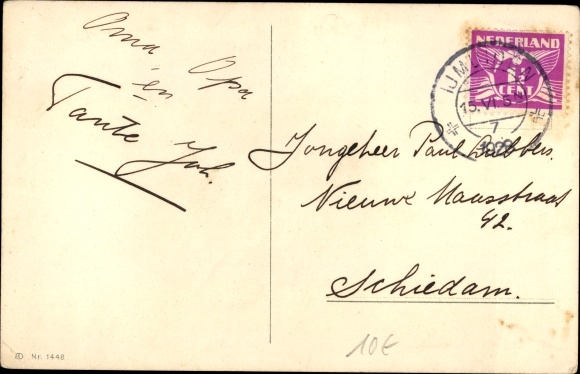 Oma
Opa
en
Tante Joh.
NEDERLAND
CENT
IJMUIDEN
15.VI
7
Jongeheer Paul
Nieuwe Maasstraat
42.
Schiedam.
10€
Nr. 1448